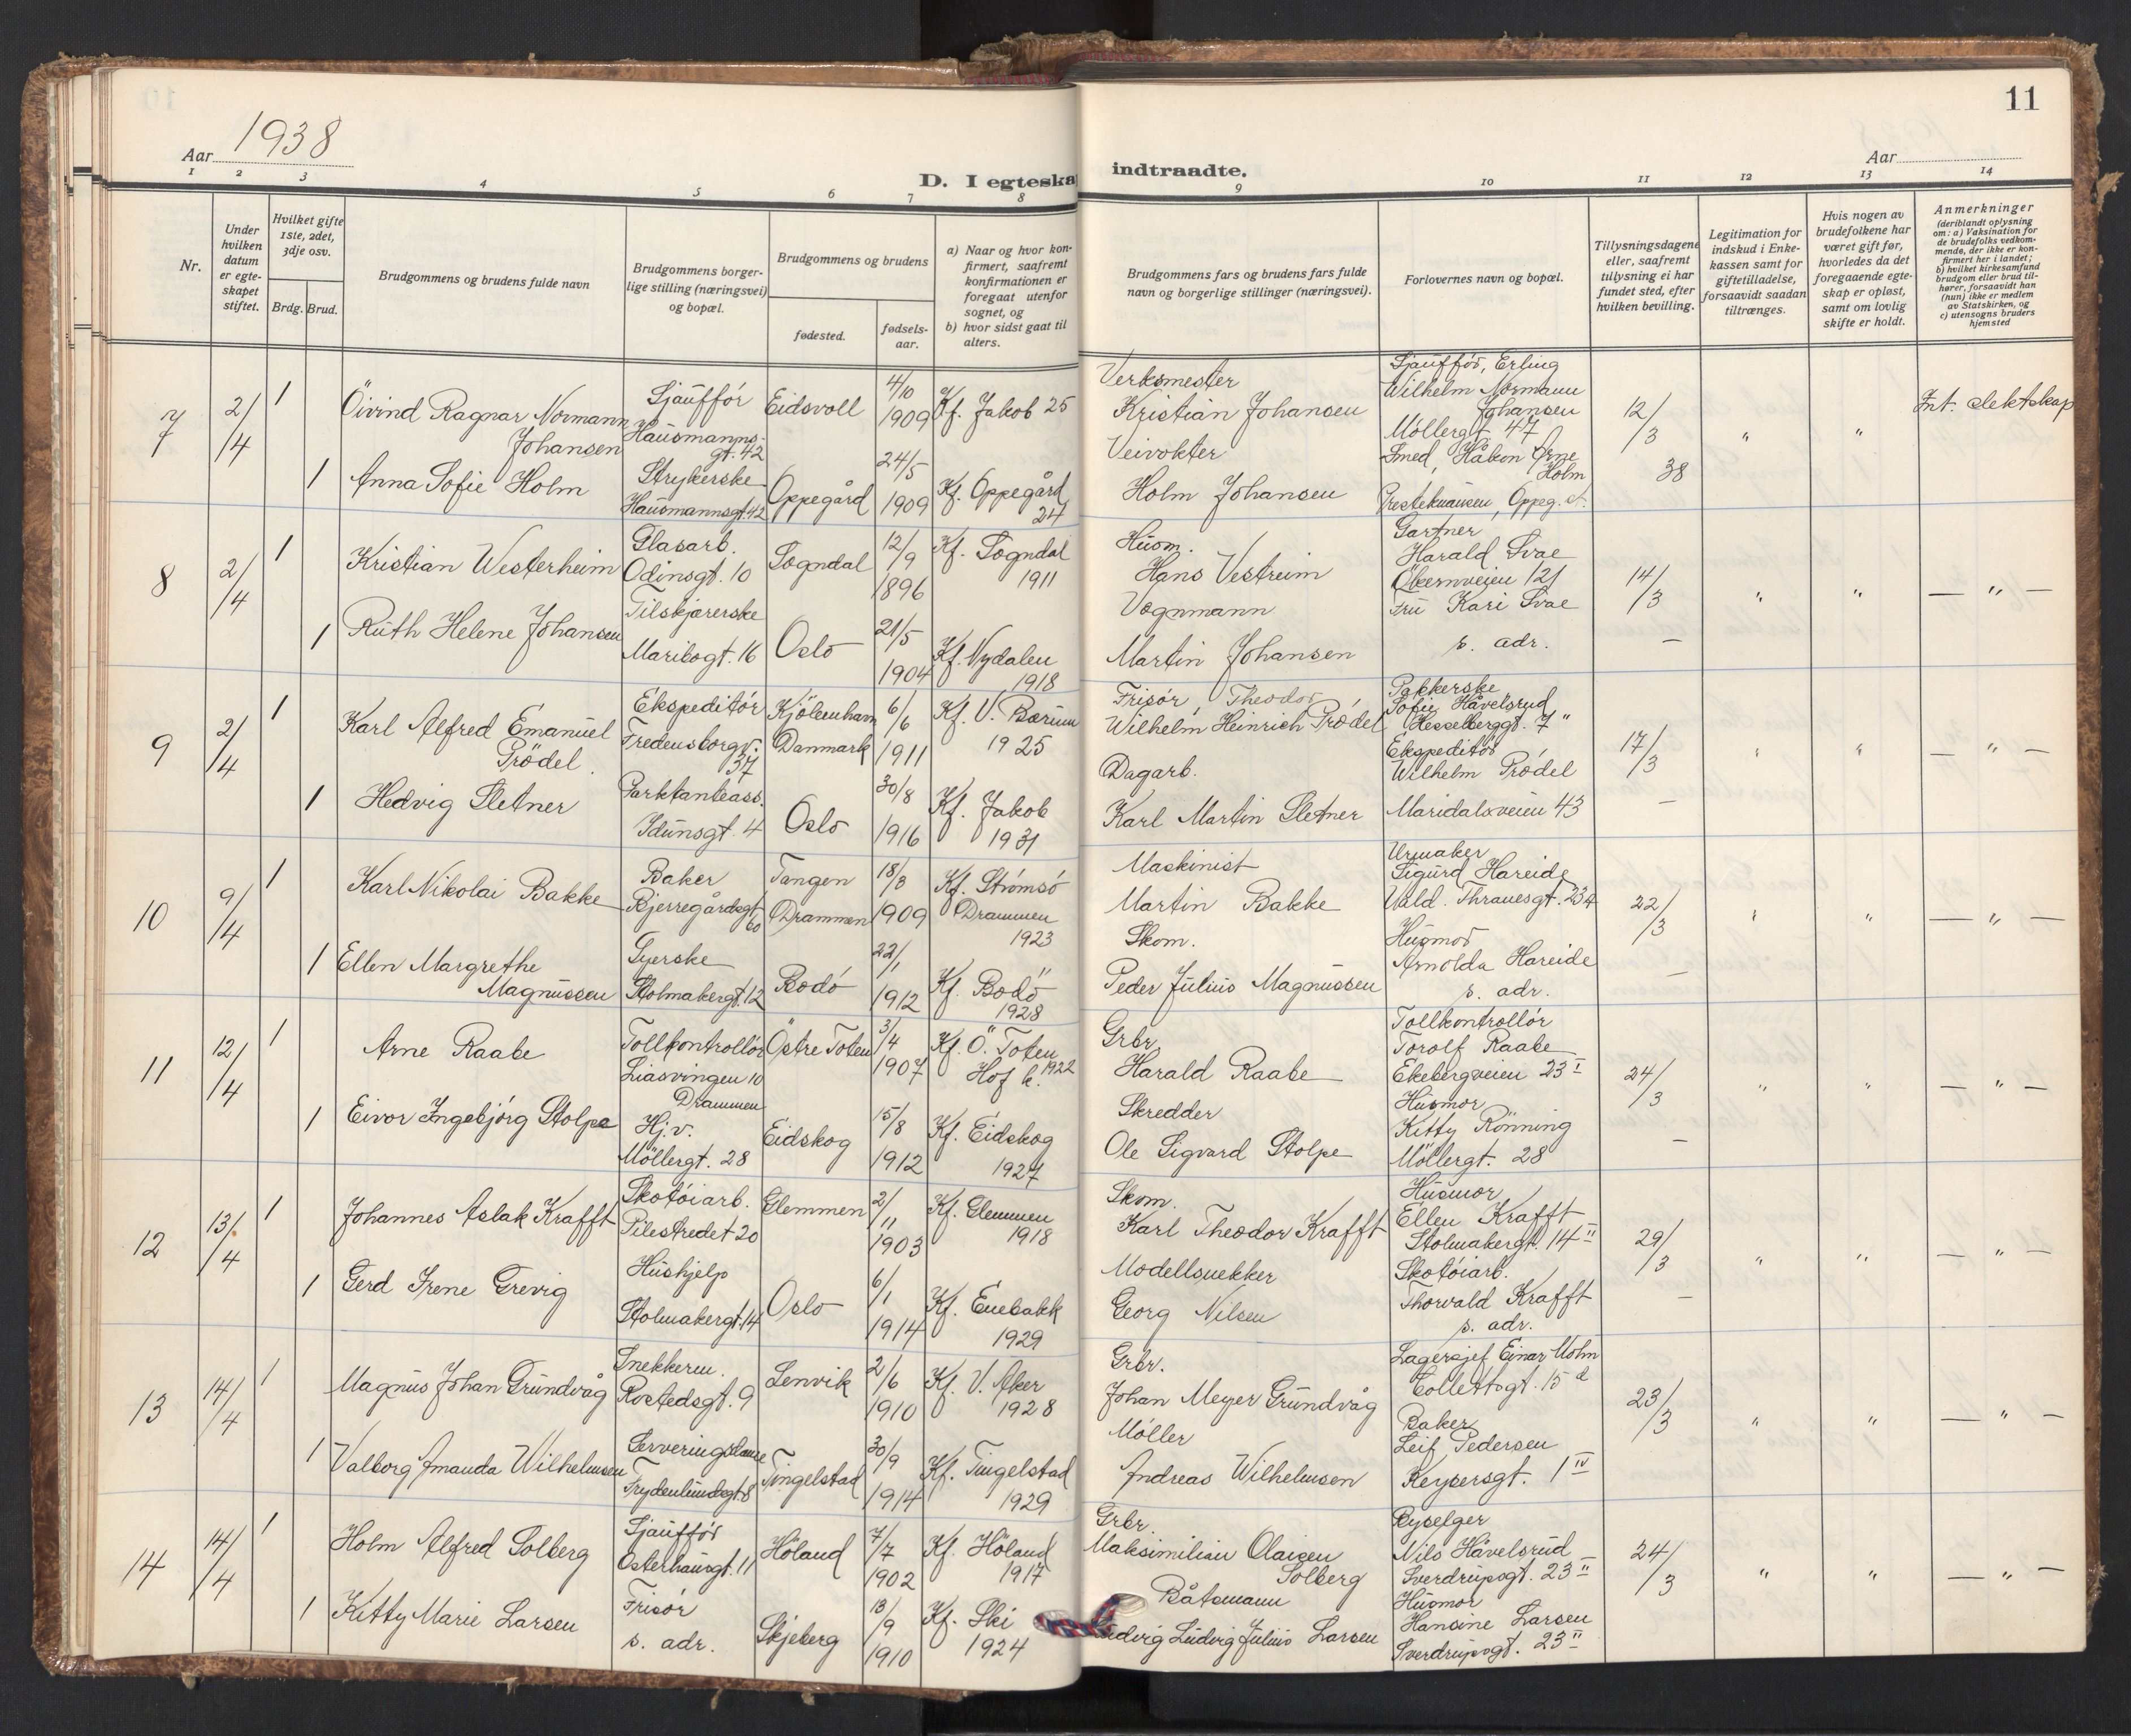 11
Aar 1938
Aar
D. I egteska
indtraadte.
1 2 3 4 5 6 7 8 9 10 11 12 13 14
Nr.
Under hvilken datum er egte-skapet stiftet.
Hvilket gifte 1ste, 2det, 3dje osv.
Brdg. Brud.
Brudgommens og brudens fulde navn
Brudgommens borger-lige stilling (næringsvei) og bopæl.
Brudgommens og brudens
fødested.
fødsels-aar.
a) Naar og hvor kon-firmert, saafremt konfirmationen er foregaat utenfor sognet, og
b) hvor sidst gaat til alters.
Brudgommens fars og brudens fars fulde navn og borgerlige stillinger (næringsvei).
Forlovernes navn og bopæl.
Tillysningsdagene eller, saafremt tillysning ei har fundet sted, efter hvilken bevilling.
Legitimation for indskud i Enke-kassen samt for giftetilladelse, forsaavidt saadan tiltrænges.
Hvis nogen av brudefolkene har været gift før, hvorledes da det foregaaende egte-skap er opløst, samt om lovlig skifte er holdt.
Anmerkninger (deriblandt oplysning om: a) Vaksination for de brudefolks vedkom-mende, der ikke er kon-firmert her i landet; b) hvilket kirkesamfund brudgom eller brud til-hører, forsaavidt han (hun) ikke er medlem av Statskirken, og c) utensogns bruders hjemsted
7 2/4 1 Öivind Ragnar Normann Johansen Sjåuffór Hausmanns-gt. 42 Eidsvoll 4/10 1909 Kf. Jakob 25
Verksmester Kristian Johansen
Sjauffór, Erling Wilhelm Normann Johansen Möllergt 47
12/3 38 " " Int. slektskap
1 Anna Sofie Holm Strykerske Hausmannsgt. 42 Oppegård 24/5 1909 Kf. Oppegård 24
Veivokter Holm Johansen
Smed, Håkon Arne Holm
8 2/4 1 Kristian Westerheim Glasarb. Odinsgt. 10 Sogndal 12/9 1896 Kf. Sogndal 1911
Husm. Hans Vestreim
Gartner Harald Svae Ökernveien 121
14/3 " " — " —
1 Ruth Helene Johansen Tilskjærerske Maribogt. 16 Oslo 21/5 1904 Kf. Nydalen 1918
Vognmann Martin Johansen
Fru Kari Svae s. adr. —
9 2/4 1 Karl Alfred Emanuel Prödel Ekspeditór Fredensborgv. 37 Kjöbenhavn Danmark 6/6 1911 Kf. V. Bærum 1925
Frisór, Theodor Wilhelm Heinrich Prödel
Pakkerske Sofie Håvelsrud Hesselberggt. 7"
17/3 " " — " —
1 Hedvig Sletner Parktanteass. Idunsgt. 4 Oslo 30/8 1916 Kf. Jakob 1931
Dagarb. Karl Martin Sletner
Ekspeditór Wilhelm Prödel Maridalsveien 43 —
10 9/4 1 Karl Nikolai Bakke Baker Bjerregårdsgt. 60 Tangen Drammen 18/3 1909 Kf. Strómsó Drammen 1923
Maskinist Martin Bakke
Urmaker Sigurd Hareide Wald. Thranesgt. 23
22/3 " " — " —
1 Ellen Margrethe Magnussen Syerske Stolmakergt. 12 Bodó 22/1 1912 Kf. Bodö 1928
Skom. Peder Julius Magnussen
Husmor Arnolda Hareide s. adr. —
11 12/4 1 Arne Raabe Tollkontrollór Liasvingen 10 Drammen Östre Toten 3/4 1907 Kf. Ö. Toten Hof k. 1922
Grbr. Harald Raabe
Tollkontrollór Torolf Raabe Ekebergveien 23 I
24/3 " " — " —
1 Eivor Ingebjórg Stolpe Hj.v. Möllergt. 28 Eidskog 15/8 1912 Kf. Eidskog 1927
Skredder Ole Sigvard Stolpe
Husmor Kitty Rönning Möllergt. 28 —
12 13/4 1 Johannes Aslak Krafft Skotóiarb. Pilestredet 20 Glemmen 2/11 1903 Kf. Glemmen 1918
Skom. Karl Theodor Krafft
Husmor Ellen Krafft Stolmakergt. 14 II
29/3 " " — " —
1 Gerd Irene Grevig Hushjelp Stolmakergt. 14 Oslo 6/1 1914 Kf. Enebakk 1929
Modellsnekker Georg Nilsen
Skotóiarb. Thorvald Krafft s. adr. —
13 14/4 1 Magnus Johan Grundvåg Snekkerm. Rostedsgt. 9 Lenvik 2/6 1910 Kf. V. Aker 1928
Grbr. Johan Meyer Grundvåg
Lagersjef Einar Molm Collettsgt. 15 d
23/3 " " — " —
1 Valborg Amanda Wilhelmsen Serveringsdame Frydenlundsgt. 8 Tingelstad 30/9 1914 Kf. Tingelstad 1929
Móller Andreas Wilhelmsen
Baker Leif Pedersen Keysersgt. 1 IV
14 14/4 1 Holm Alfred Solberg Sjauffór Osterhausgt. 11 Höland 7/7 1902 Kf. Höland 1917
Grbr. Maksimilian Olaisen Solberg
Nils Håvelsrud Sverdrupsgt. 23 II
24/3 " " — " —
1 Kitty Marie Larsen Frisór s. adr. Skjeberg 13/9 1910 Kf. Ski 1924
Båtsmann Ludvig Julius Larsen
Husmor Hansine Larsen Sverdrupsgt. 23 II